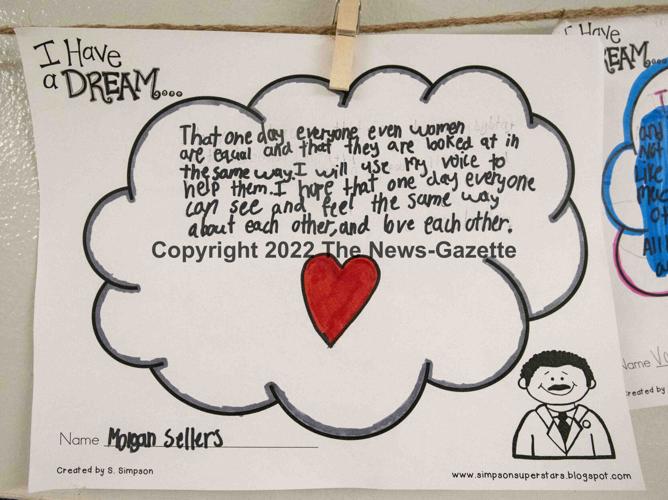 I Have
a DREAM...
That one day everyone even women
are equal and that they are looked at in
the same way. I will use my voice to
help them. I hope that one day everyone
can see and feel the same way
about each other, and love each other.
Copyright 2022 The News-Gazette
Name Morgan Sellers
Created by S. Simpson
www.simpsonsuperstars.blogspot.com
I Have
EAM...
and
Not
Like
All
Name
reated by